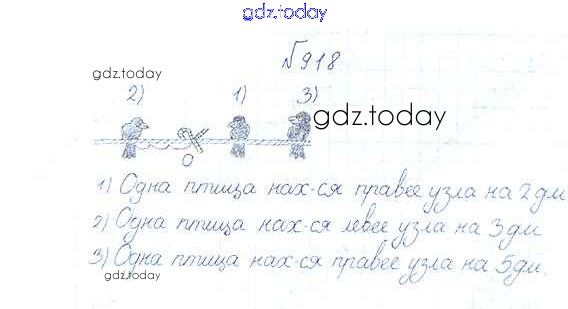 gdz.today
№918
gdz.today
2) 1) 3)
gdz.today
0
1) Одна птица нах-ся правее узла на 2 дм
2) Одна птица нах-ся левее узла на 3 дм
3) Одна птица нах-ся правее узла на 5 дм.
gdz.today